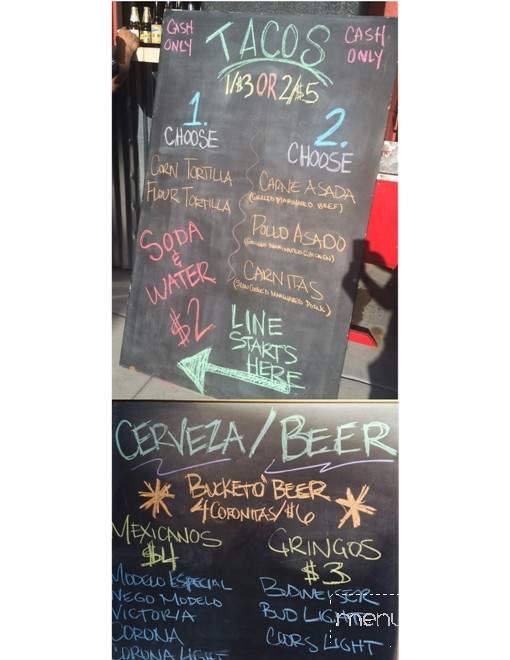 CASH ONLY
TACOS
CASH ONLY
1/$3 OR 2/$5
1.
CHOOSE
CORN TORTILLA
FLOUR TORTILLA
SODA
&
WATER
$2
2.
CHOOSE
CARNE ASADA
(GRILLED MARINATED BEEF)
POLLO ASADO
(GRILLED MARINATED CHICKEN)
CARNITAS
(SLOW COOKED MARINATED PORK)
LINE
STARTS
HERE
CERVEZA/BEER
BUCKET O' BEER
4 CORONITAS/$6
MEXICANOS
$4
MODELO ESPECIAL
NEGO MODELO
VICTORIA
CORONA
CORONA LIGHT
GRINGOS
$3
BUDWEISER
BUD LIGHT
COORS LIGHT
menu